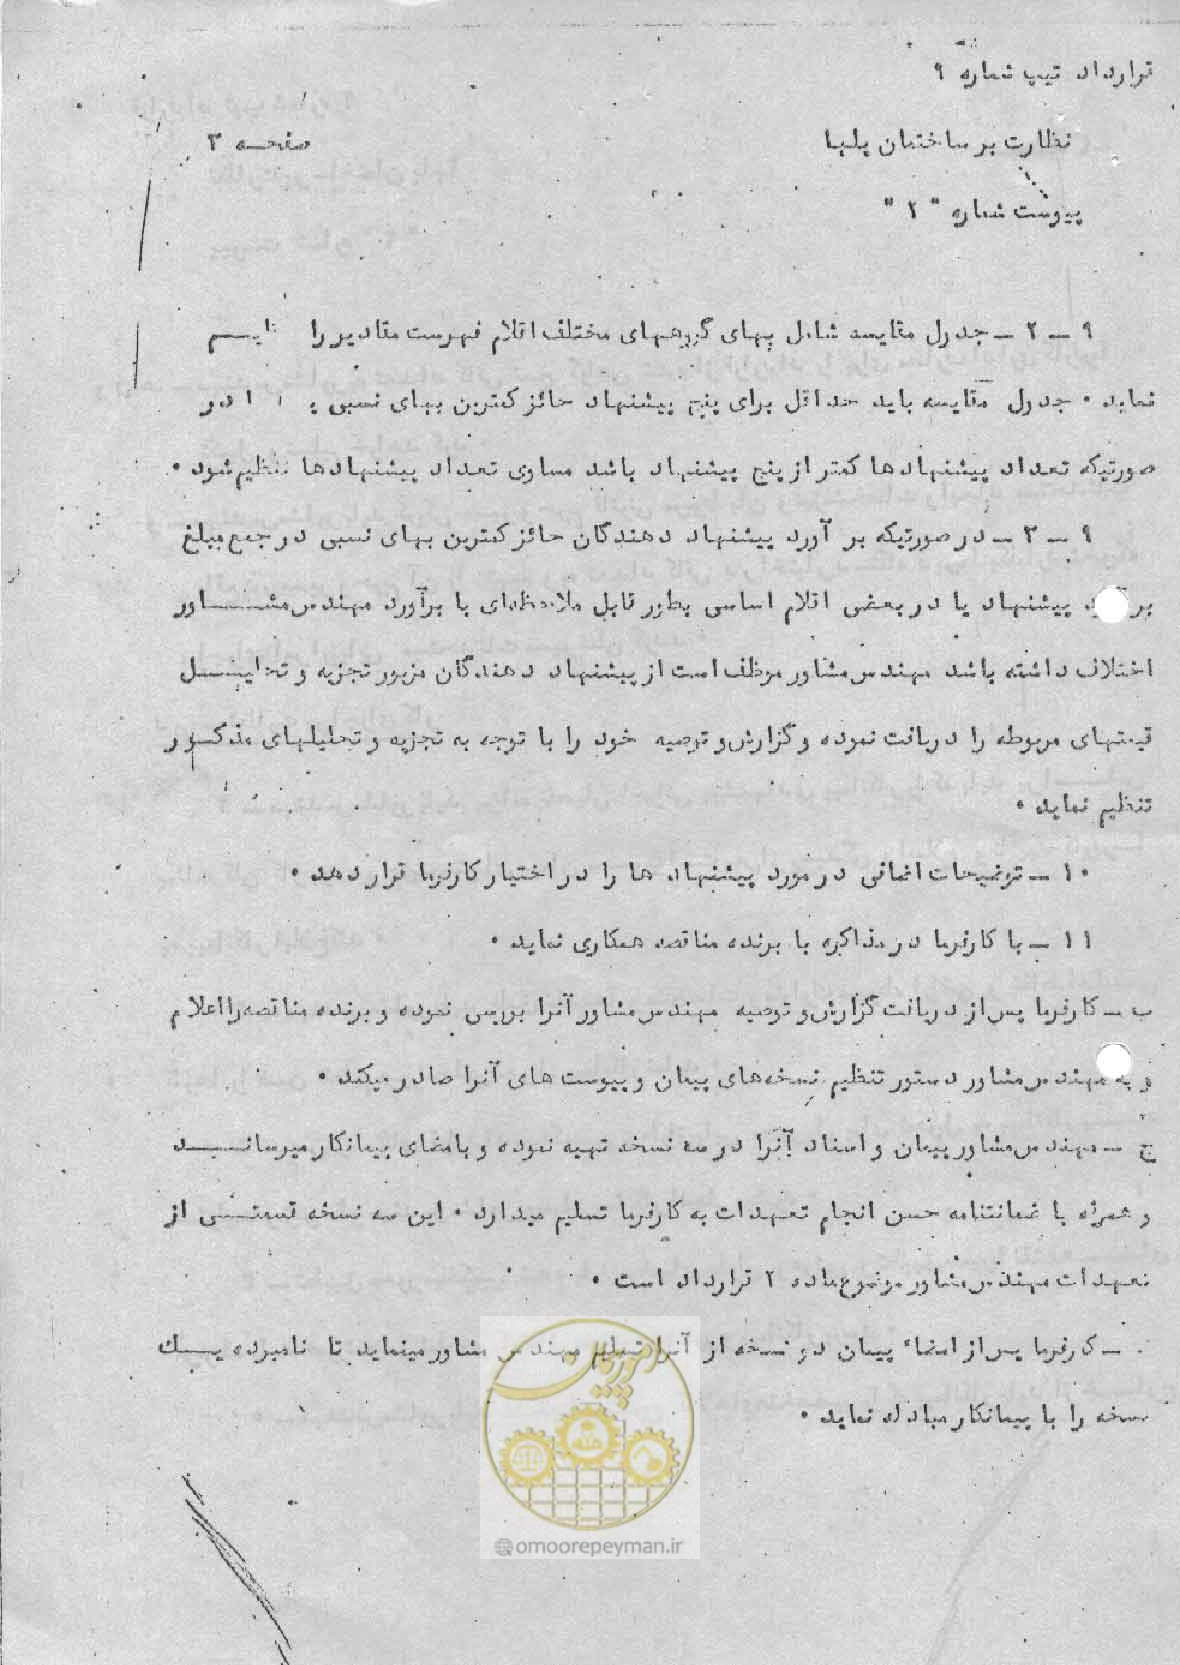 قرارداد تیپ شماره ۹
نظارت بر ساختمان پلها
صفحه ۳
پیوست شماره " ۲ "
۹ ــ ۲ ــ جدول مقایسه شامل بهای گروههای مختلف اقلام فهرست مقادیر را
نماید ۰ جدول مقایسه باید حداقل برای پنج پیشنهاد حائز کمترین بهای نسبی در
صورتیکه تعداد پیشنهادها کمتر از پنج پیشنهاد باشد مساوی تعداد پیشنهادها تنظیم شود ۰
۹ ــ ۳ ــ در صورتیکه بر آورد پیشنهاد دهندگان حائز کمترین بهای نسبی در جمع مبلغ
پیشنهاد یا در بعضی اقلام اساسی بطور قابل ملاحظه‌ای با برآورد مهندس مشـــــاور
اختلاف داشته باشد مهندس مشاور موظف است از پیشنهاد دهندگان مزبور تجزیه و تحلیــــل
قیمتهای مربوطه را دریافت نموده و گزارش و توصیه خود را با توجه به تجزیه و تحلیلهای مذکـــور
تنظیم نماید ۰
۱۰ ــ توضیحات اضافی در مورد پیشنهاد ها را در اختیار کارفرما قرار دهد ۰
۱۱ ــ با کارفرما در مذاکره با برنده مناقصه همکاری نماید ۰
ب ــ کارفرما پس از دریافت گزارش و توصیه مهندس مشاور آنرا بررسی نموده و برنده مناقصه را اعلام
و به مهندس مشاور دستور تنظیم نسخه‌های پیمان و پیوست های آنرا صادر میکند ۰
ج ــ مهندس مشاور پیمان و اسناد آنرا در سه نسخه تهیه نموده و بامضای پیمانکار میرسانـــد
و همراه با ضمانتنامه حسن انجام تعهدات به کارفرما تسلیم میدارد ۰ این سه نسخه قسمتـــی از
تعهدات مهندس مشاور موضوع ماده ۲ قرارداد است ۰
ــ کارفرما پس از امضاء پیمان دو نسخه از آنرا تسلیم مهندس مشاور مینماید تا نامبرده یـــك
نسخه را با پیمانکار مبادله نماید ۰
امور پیمان
@omoorepeyman.ir